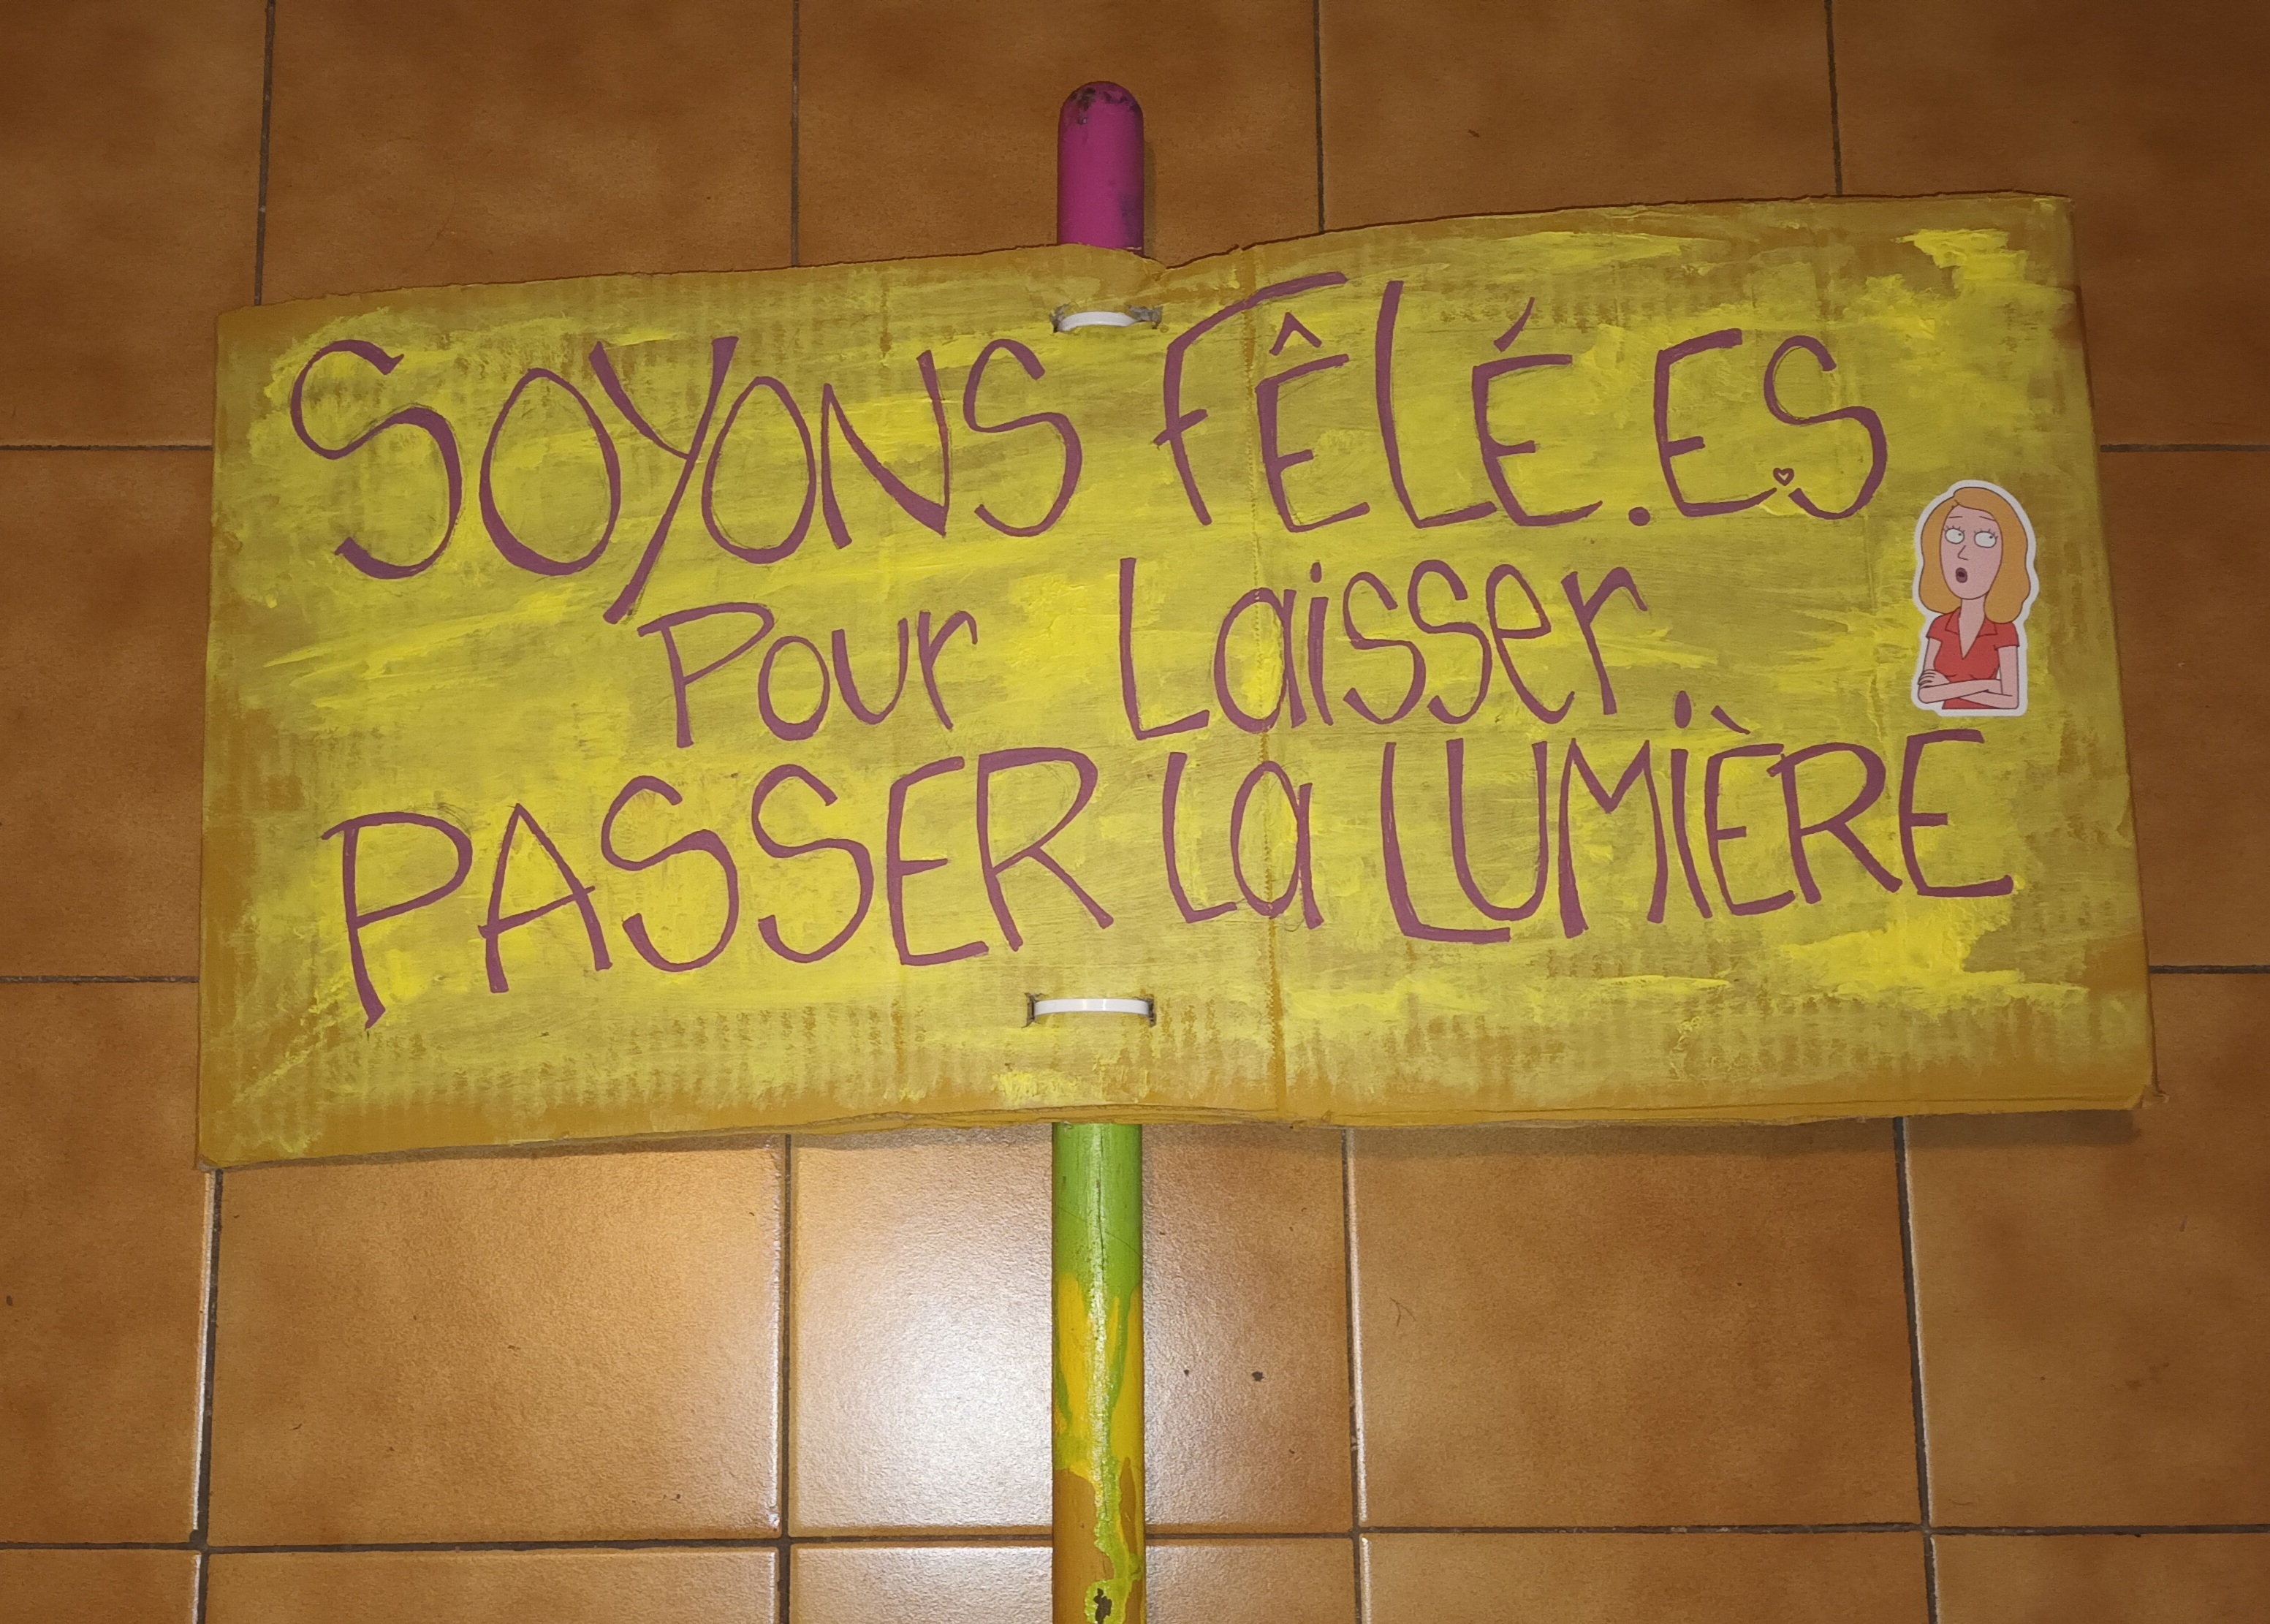 SOYONS FÊLÉ.ES
Pour Laisser
PASSER La LUMIÈRE